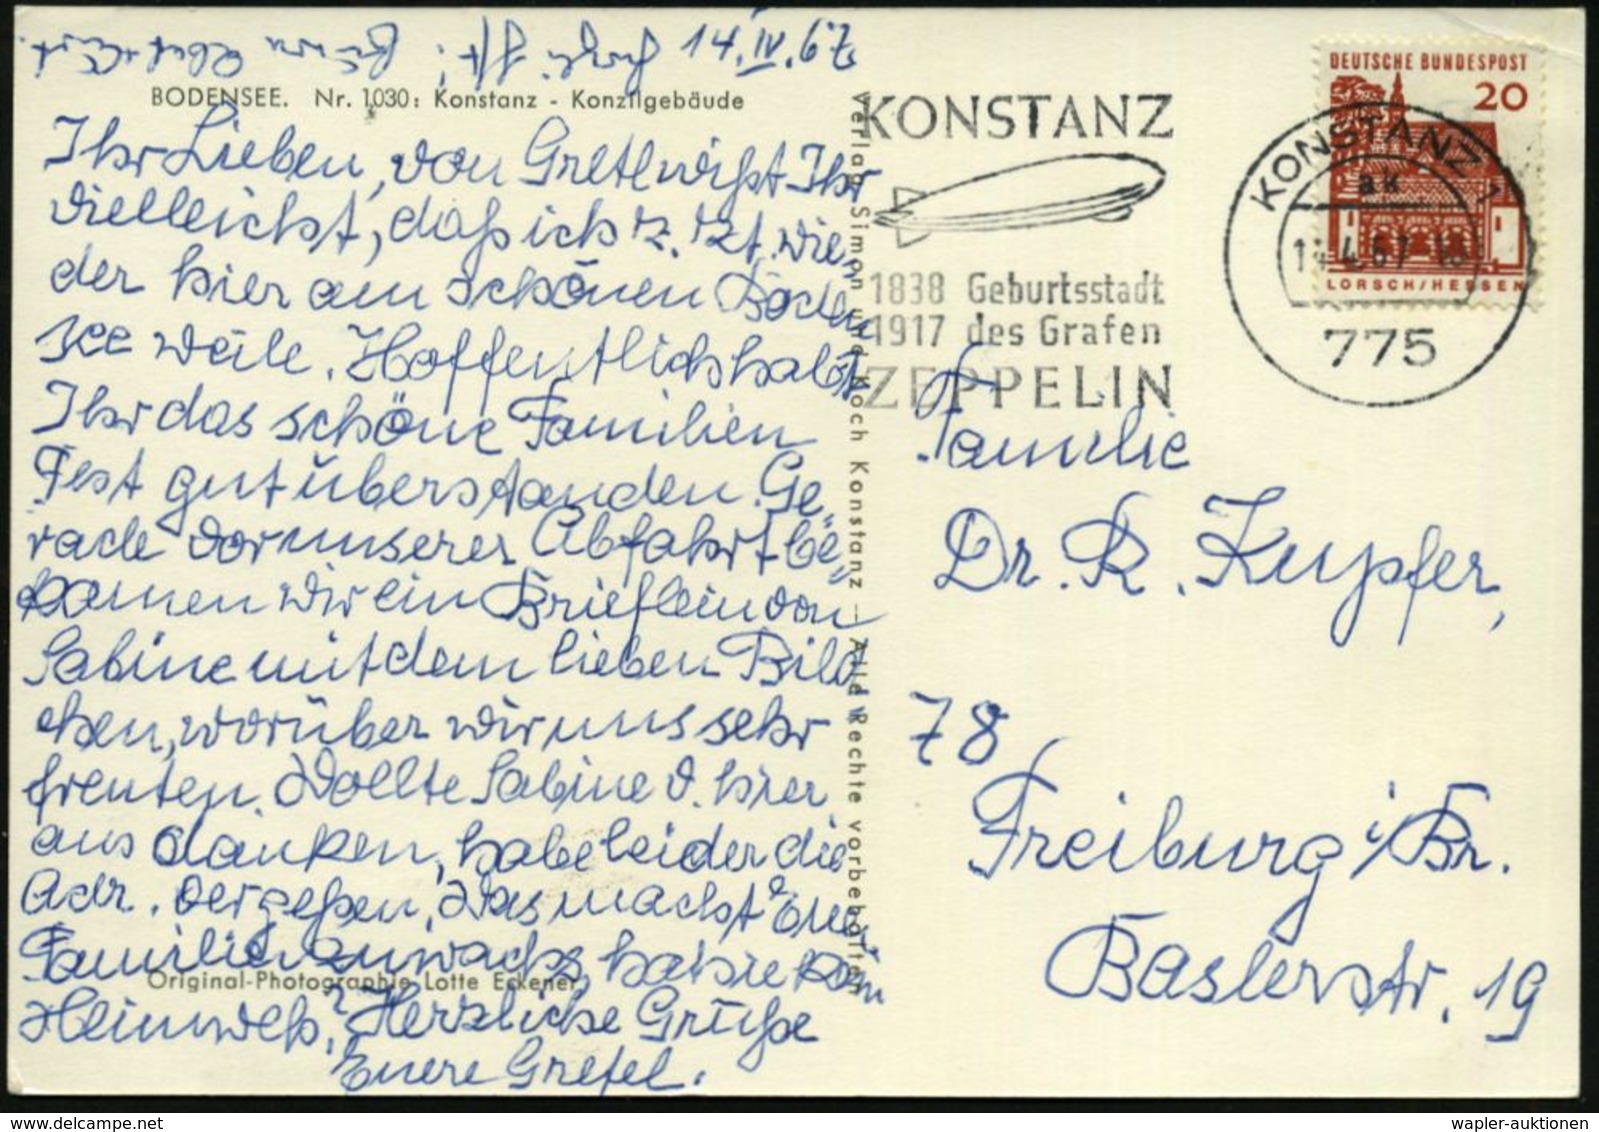 14.IV.67
BODENSEE. Nr. 1030: Konstanz - Konzilgebäude
Ihr Lieben, von Gretl wißt Ihr
vielleicht, daß ich z. Zt. wie-
der hier am schönen Boden
see weile. Hoffentlich habt
Ihr das schöne Familien
Fest gut überstanden. Ge-
rade vor unserer Abfahrt be-
kamen wir ein Brieflein von
Sabine mit dem lieben Bild
chen, worüber wir uns sehr
freuten. Wollte Sabine v. hier
aus danken, habe leider die
Adr. vergeßen, Was macht Euer
Familienzuwachs, hat sie kein
Original-Photographie Lotte Eckener
Heimweh? Herzliche Grüße
Euere Gretel.
Verlag Simon und Koch Konstanz - Alle Rechte vorbehalten
KONSTANZ
1838 Geburtsstadt
1917 des Grafen
ZEPPELIN
DEUTSCHE BUNDESPOST
20
LORSCH/HESSEN
KONSTANZ 1
ak
14.4.67
775
Familie
Dr. R. Kupfer,
78
Freiburg i/Br.
Baslerstr. 19
wapler-auktionen